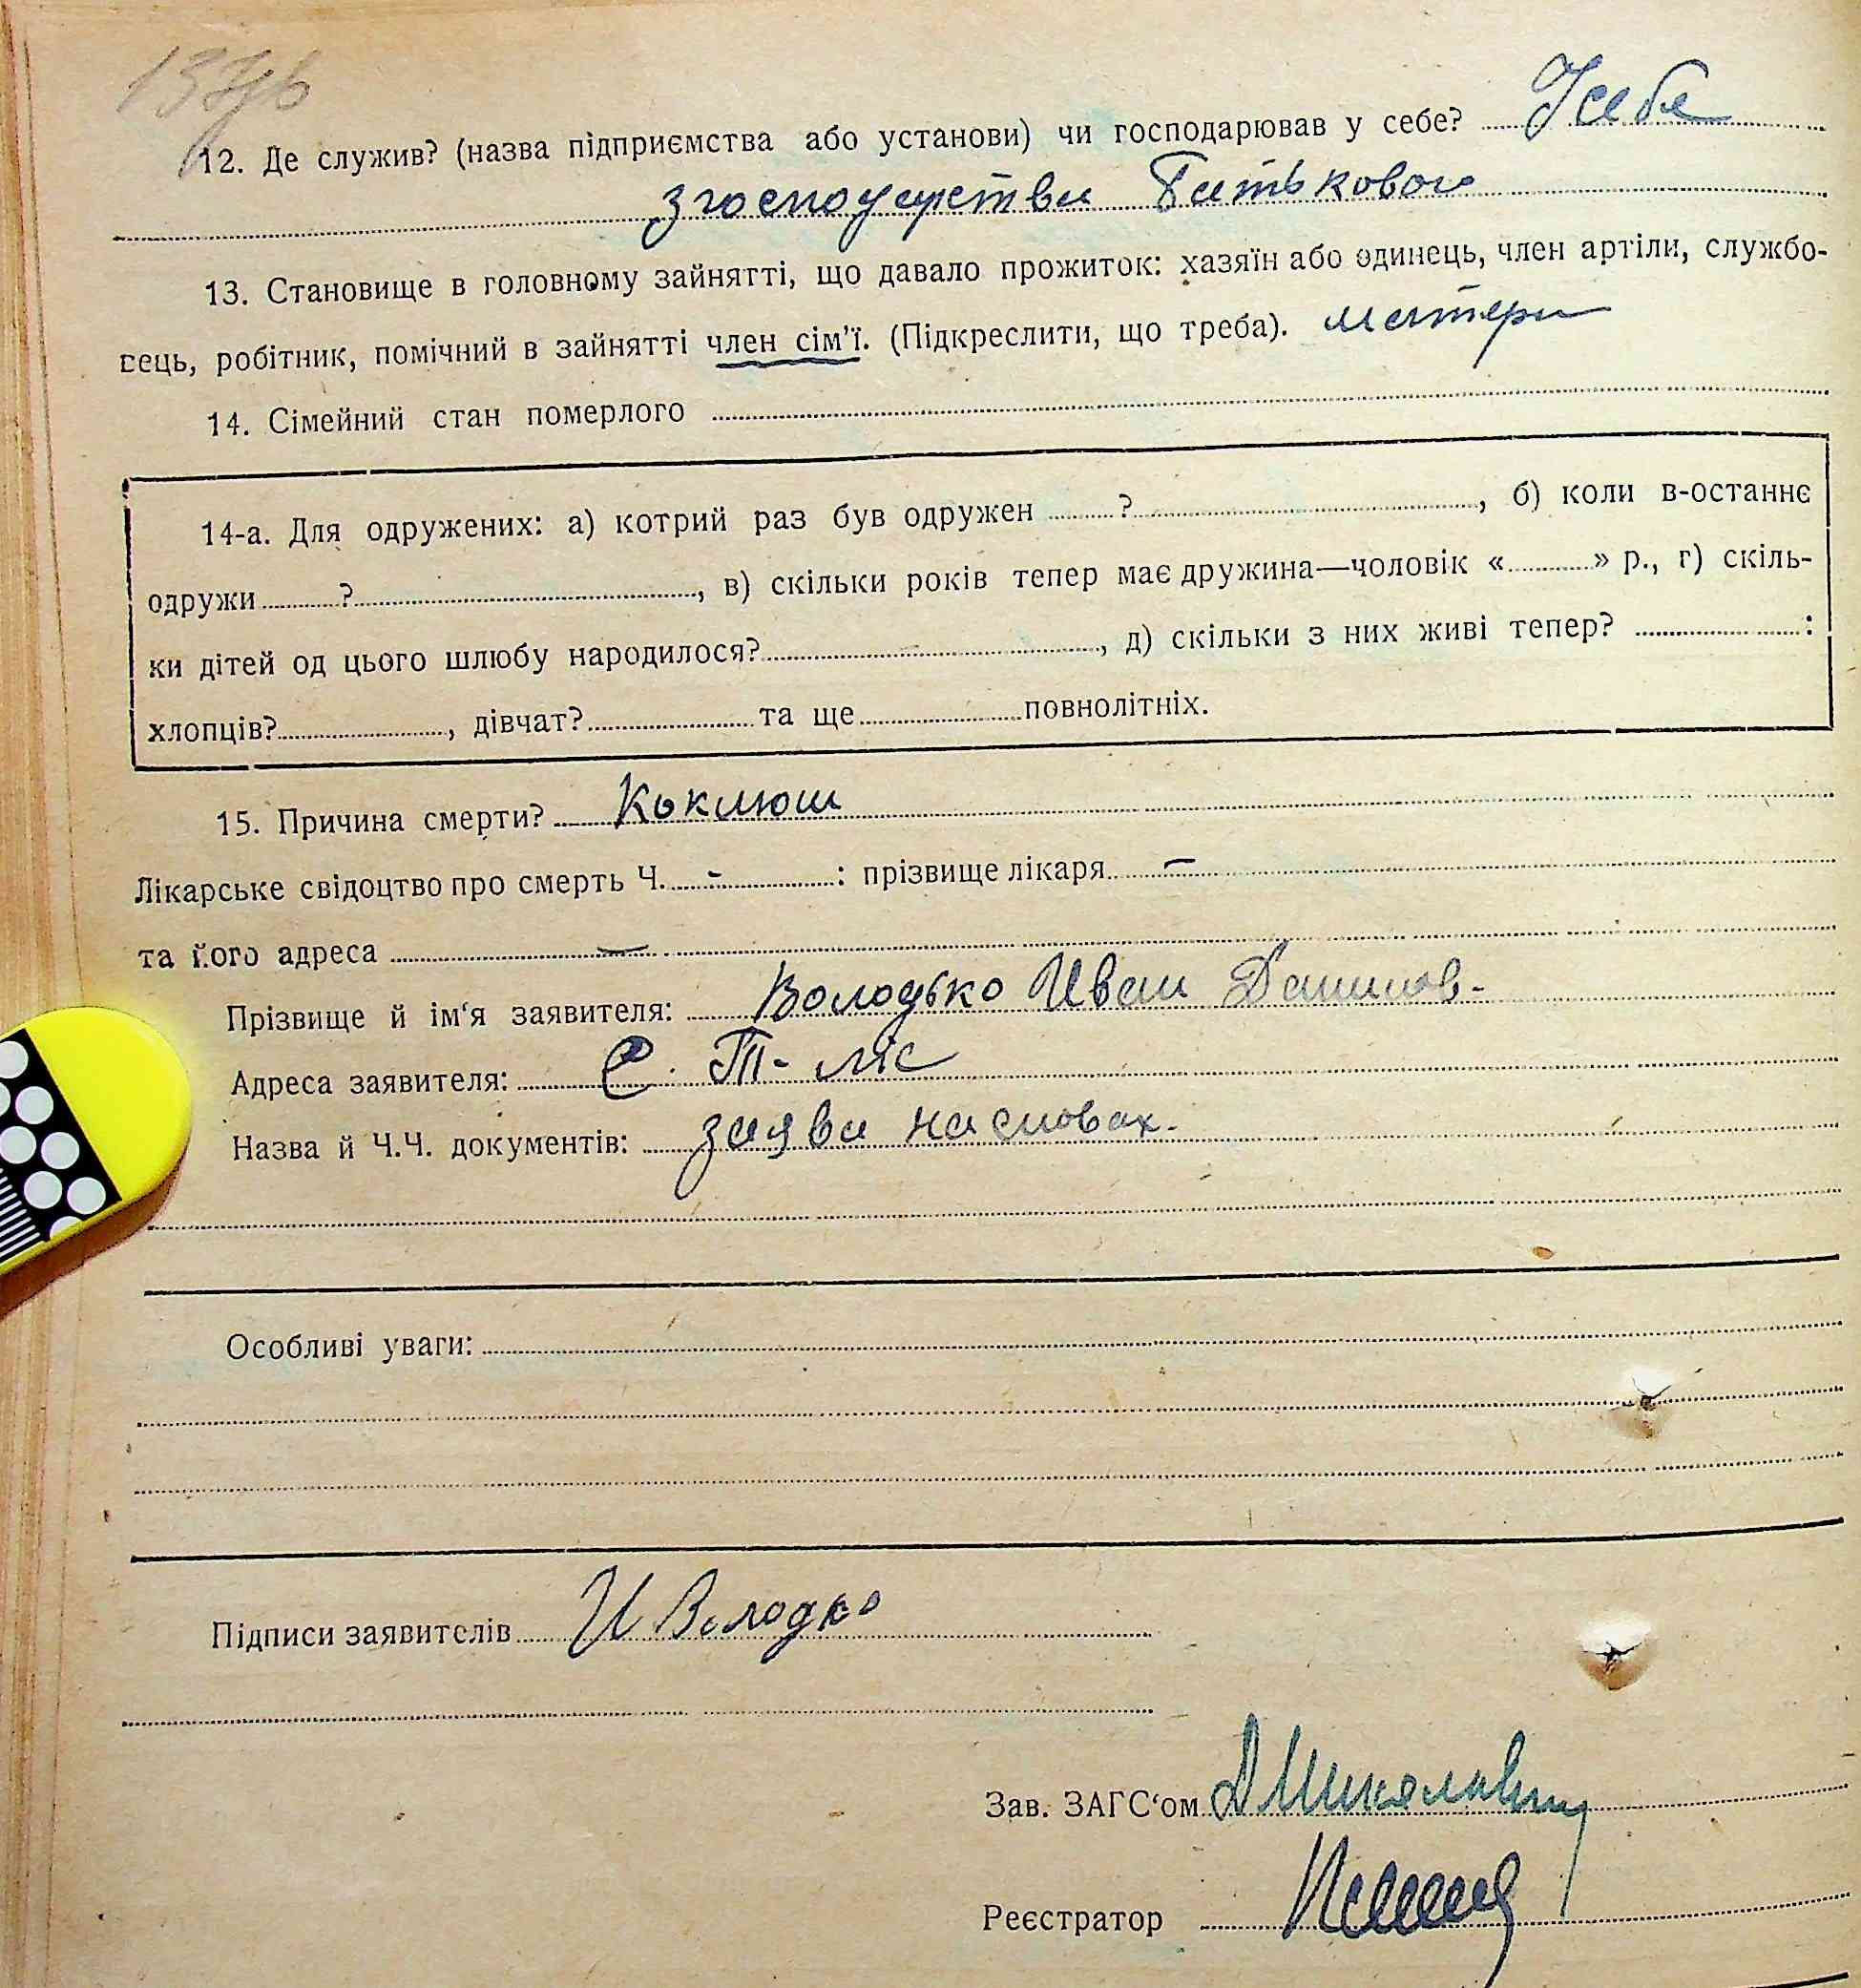 12. Де служив? (назва підприємства або установи) чи господарював у себе? У себе
з господарства Батькового
13. Становище в головному зайнятті, що давало прожиток: хазяїн або одинець, член артіли, службо-
вець, робітник, помічний в зайнятті член сім'ї. (Підкреслити, що треба). матери
14. Сімейний стан померлого
14-а. Для одружених: а) котрий раз був одружен ? , б) коли в-останнє
одружи ? , в) скільки років тепер має дружина—чоловік « » р., г) скіль-
ки дітей од цього шлюбу народилося? , д) скільки з них живі тепер? :
хлопців? , дівчат? та ще повнолітніх.
15. Причина смерти? Коклюш
Лікарське свідоцтво про смерть Ч. - : прізвище лікаря -
та його адреса —
Прізвище й ім‘я заявителя: Володько Иван Данилов-
Адреса заявителя: с.
Назва й Ч.Ч. документів: заява на словах.
Особливі уваги:
Підписи заявителів И Володко
Зав. ЗАГС‘ом
Реєстратор